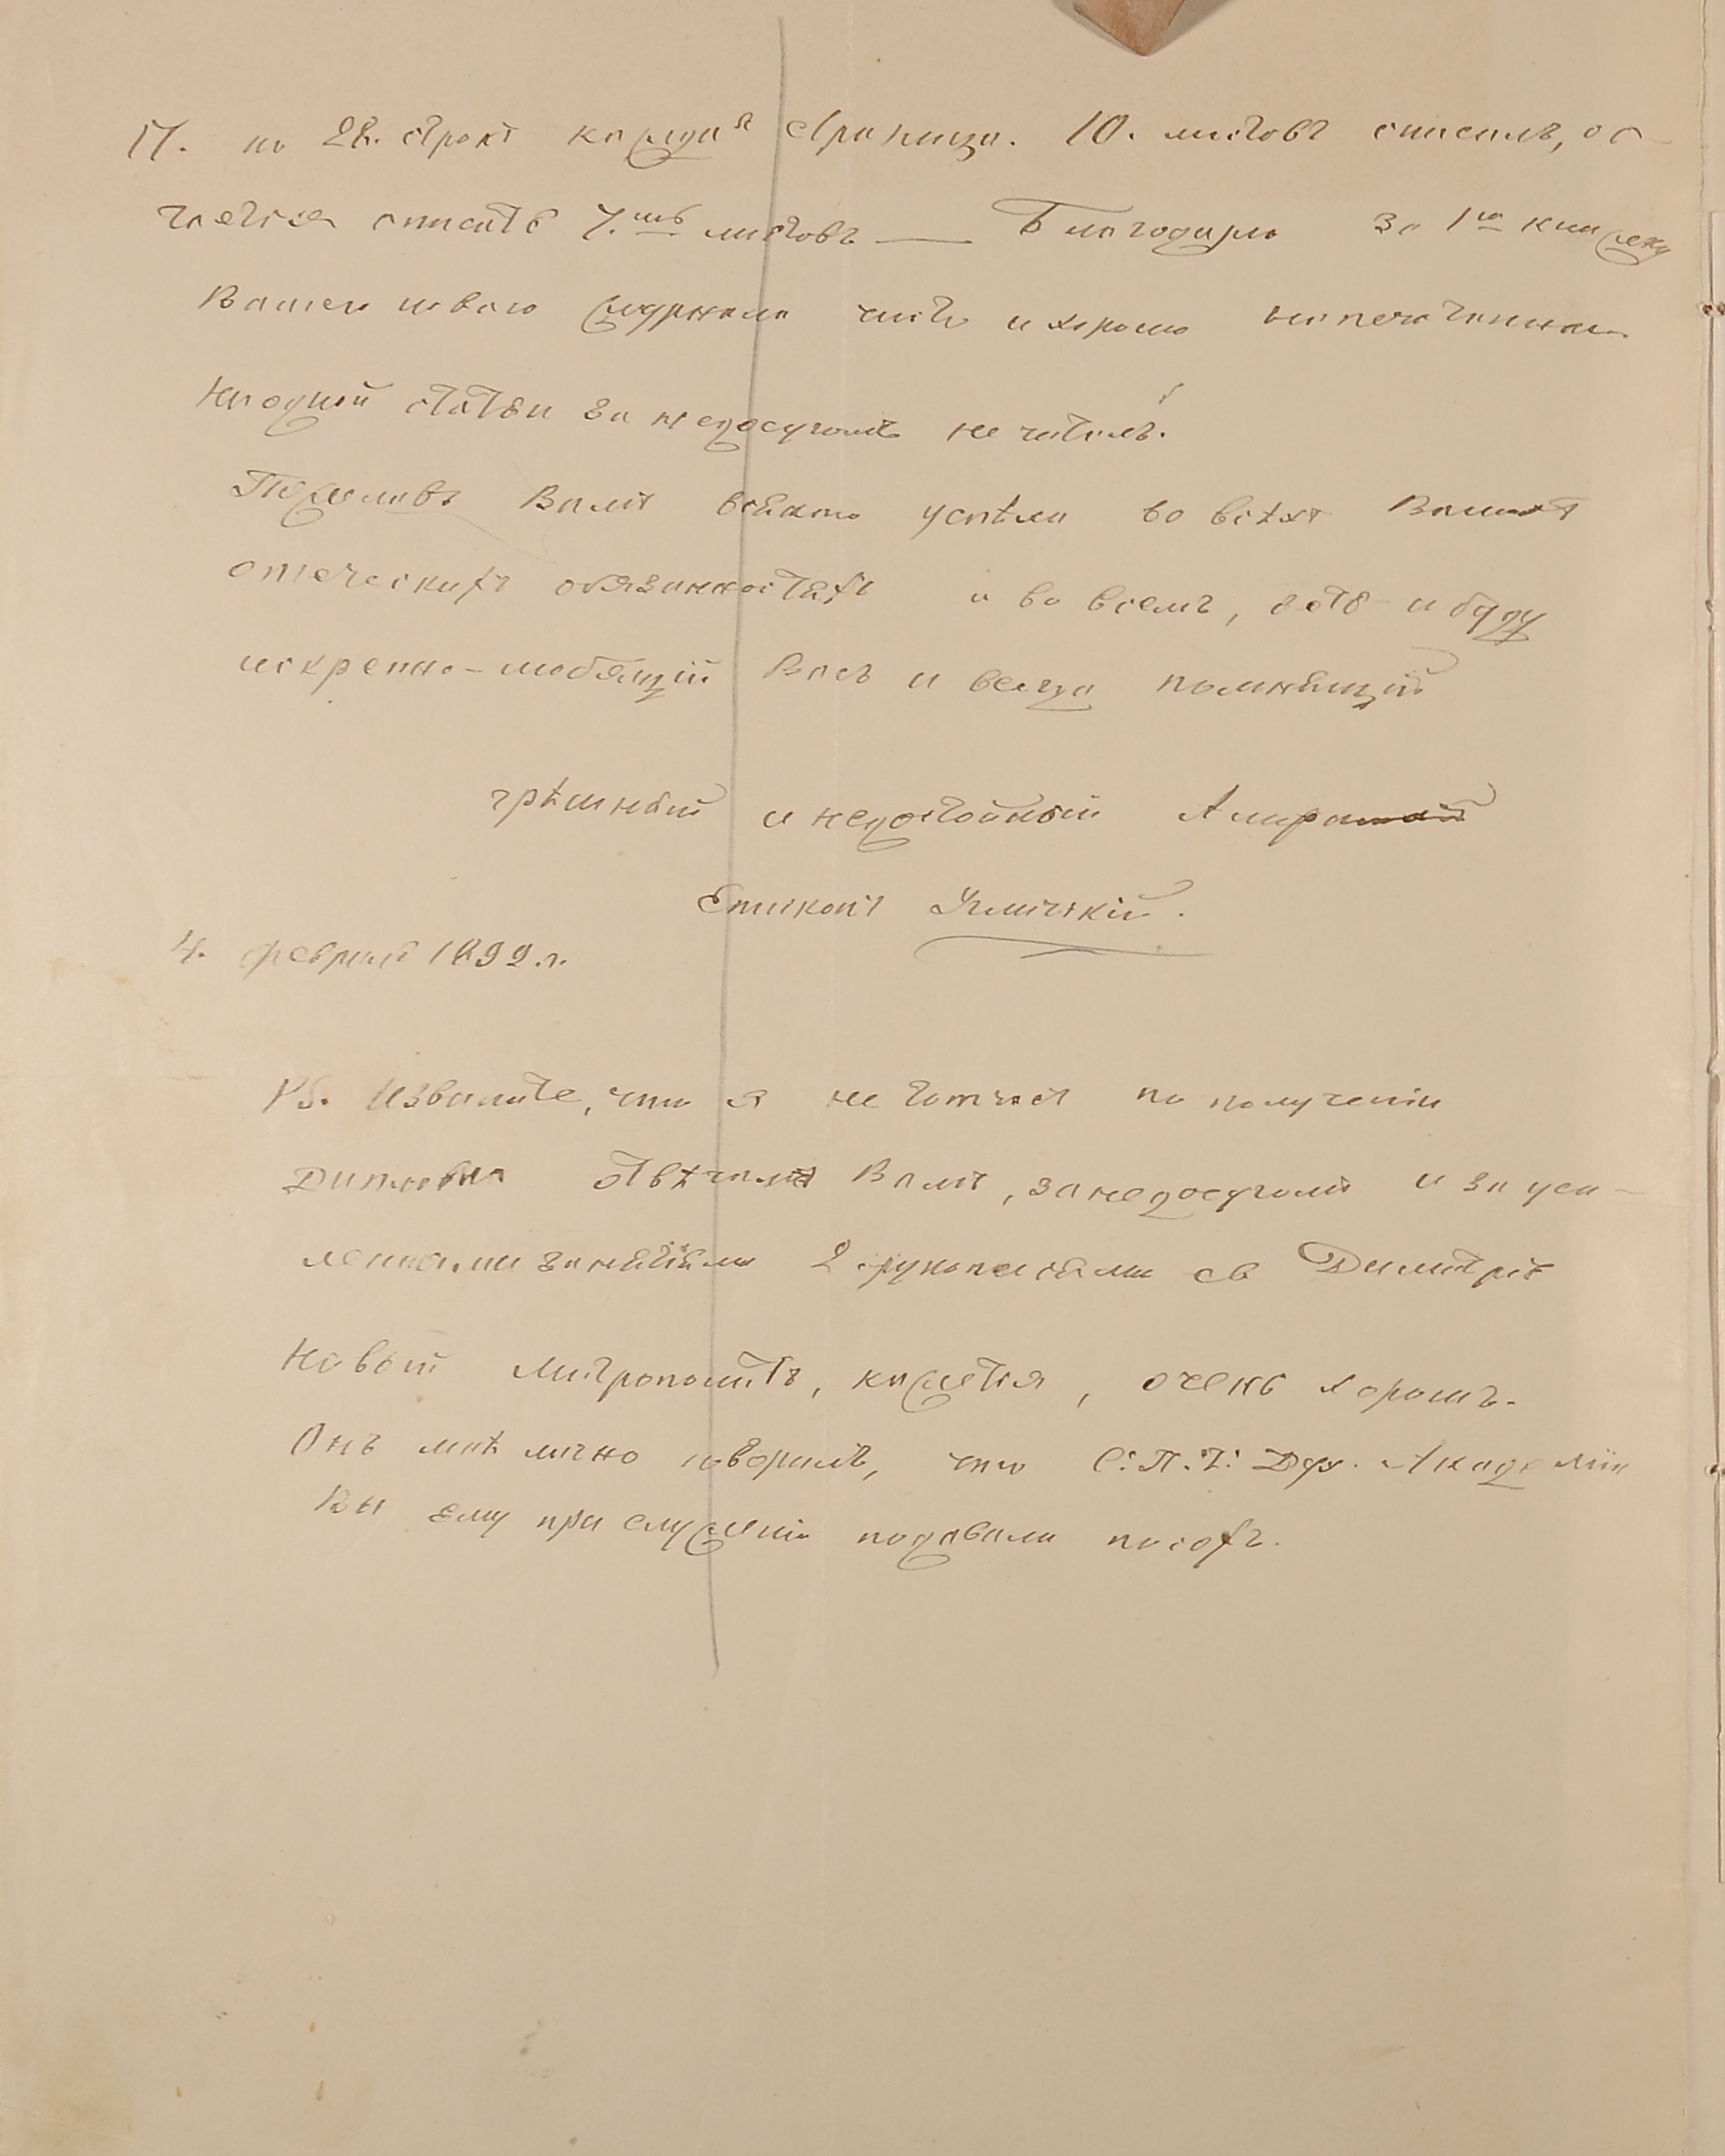 17. по 28. строкъ каждая страница. 10. листовъ списалъ, ос-
тается списать 7.мь листовъ — Благодарю за 1ю книжку
Вашего новаго журнала чисто и хорошо напечатанную
Ни одной статьи за недосугомъ не читалъ.
Пожелавъ Вамъ всякаго успѣха во всѣхъ Вашихъ
отеческихъ обязанностяхъ и во всемъ, есть и буду
искренно-любящій Васъ и всегда помнящій
грѣшный и недостойный Амфи
Епископъ Угличскій.
4. февраля 1899. г.
PS. Извините, что я не тотчасъ по полученіи
отвѣчалъ Вамъ, за недосугомъ и за уси-
ленными занятіями рукописями св Димитрія
Новый Митрополитъ, кажется, очень хорошъ.
Онъ мнѣ лично говорилъ, что С. П. Дух. Академіи
Вы ему при служеніи подавали посохъ.